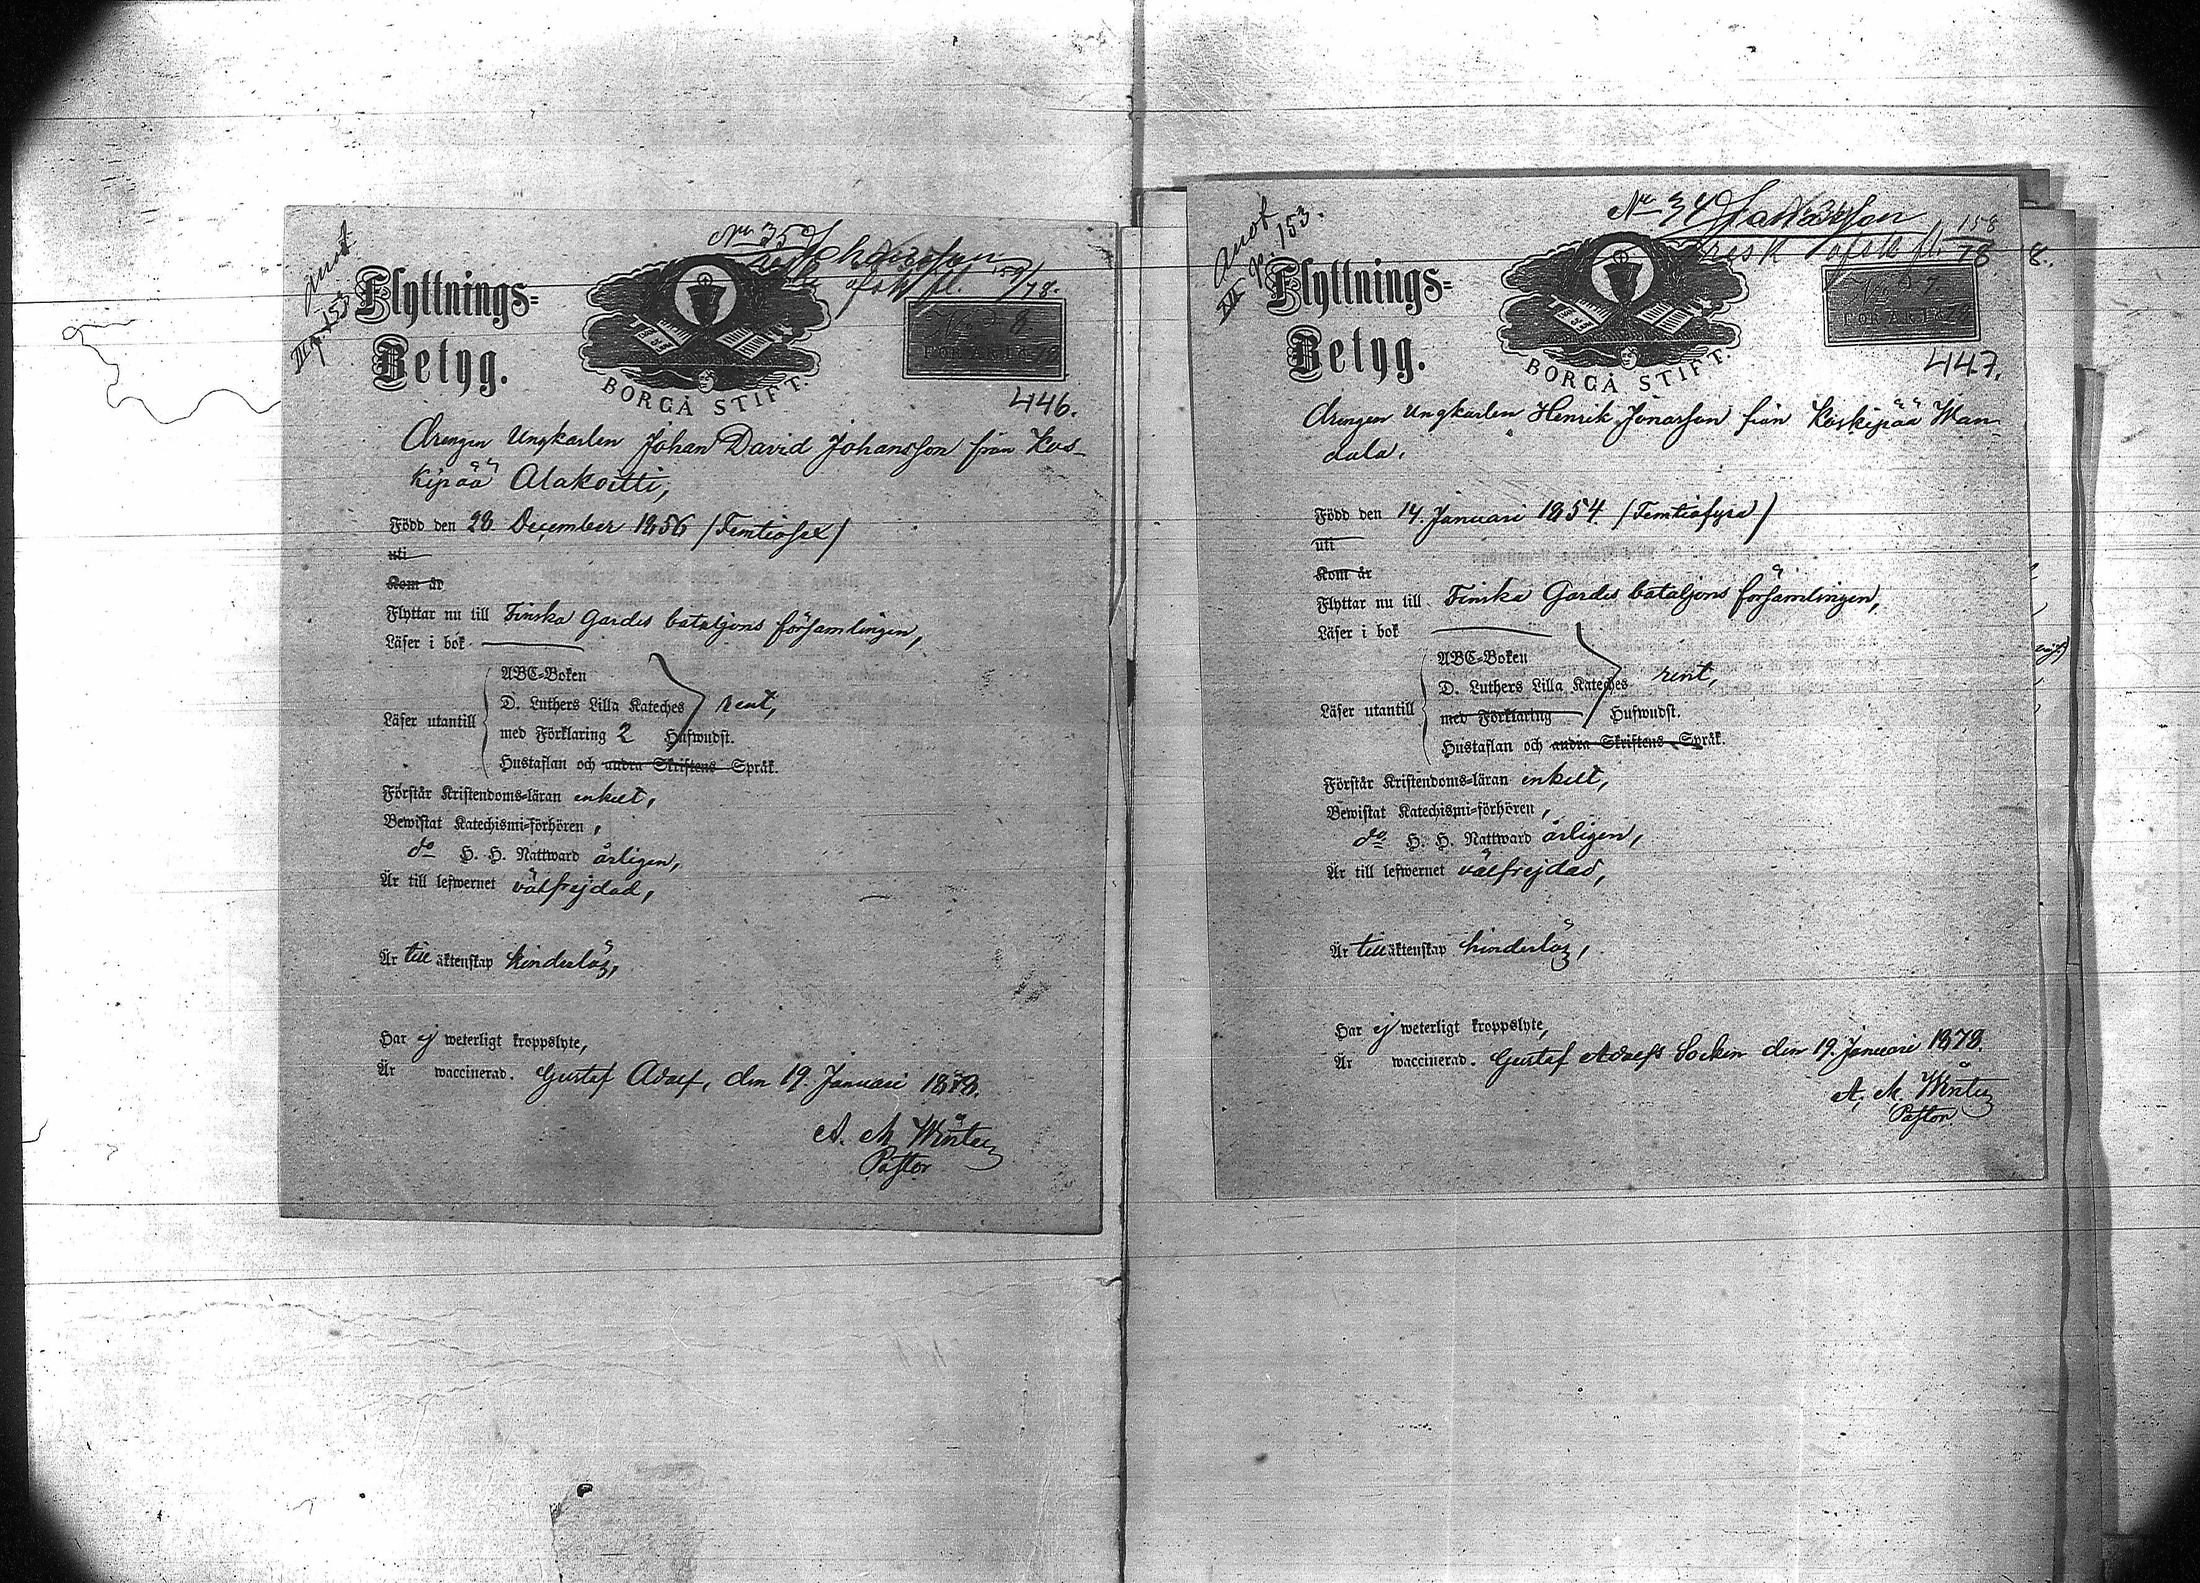 Anot
III p. 153
No 35 Johansson
159/78.
Flyttnings-
Betyg.
BORGÅ STIFT.
No 8.
FÖR ÅR 1878
446.
Drengen Ungkarlen Johan David Johansson från Kos-
kipää Alakoitti,
Född den 28 December 1856 (Femtiosex)
uti
Kom år
Flyttar nu till Finska Gardes bataljons församlingen,
Läser i bok
Läser utantill
ABC-Boken
D. Luthers Lilla Kateches rent,
med Förklaring 2 Hufwudst.
Hustaflan och andra Skriftens Språk.
Förstår Kristendoms-läran enkelt,
Bewistat Katechismi-förhören,
do H. H. Nattward årligen,
Är till lefwernet välfrejdad,
Är till äktenskap hinderlös,
Har ej weterligt kroppslyte,
Är waccinerad. Gustaf Adolf, den 19. Januari 1878.
A. M. Winter
Pastor
Anot
III p. 153.
No 34 Jonasson
resk afsk fl. 158/78
8.
Flyttnings-
Betyg.
BORGÅ STIFT.
No 7.
FÖR ÅR 1878
447.
Drengen Ungkarlen Henrik Jonasson från Koskipää Man-
dala.
Född den 14. Januari 1854. (Femtiofyra)
uti
Kom år
Flyttar nu till Finska Gardes bataljons församlingen,
Läser i bok
Läser utantill
ABC-Boken
D. Luthers Lilla Kateches rent,
med Förklaring Hufwudst.
Hustaflan och andra Skriftens Språk.
Förstår Kristendoms-läran enkelt,
Bewistat Katechismi-förhören,
do H. H. Nattward årligen,
Är till lefwernet välfrejdad,
Är till äktenskap hinderlös,
Har ej weterligt kroppslyte,
Är waccinerad. Gustaf Adolfs Socken den 19. Januari 1878.
A. M. Winter
Pastor.